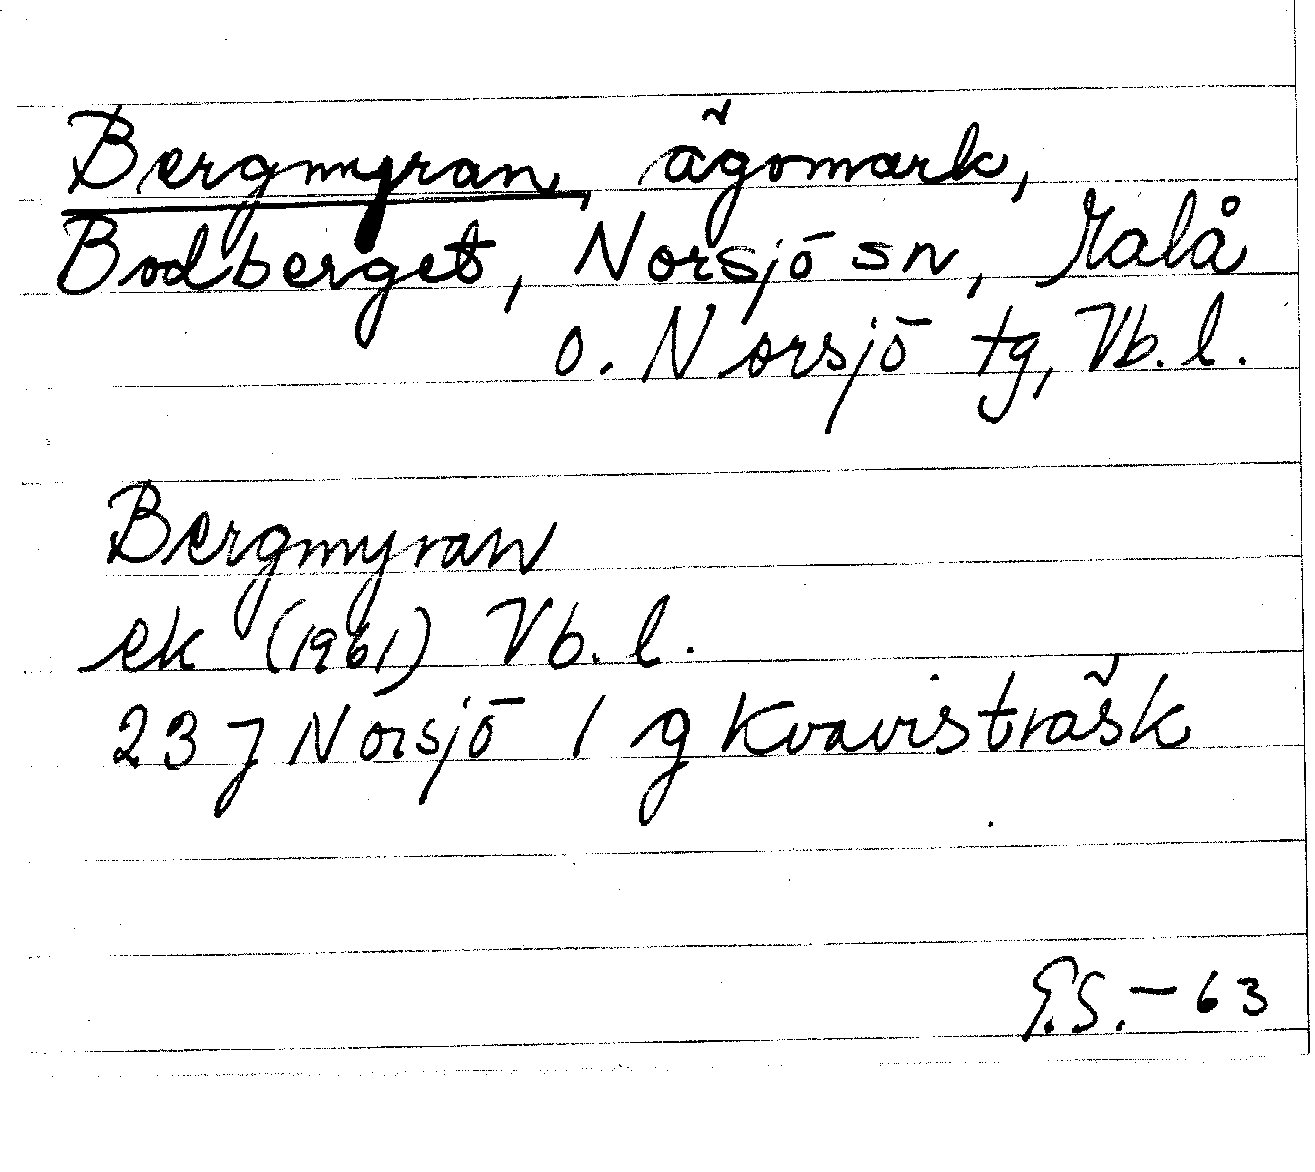 Bergmyran, ägomark,
Bodberget, Norsjö sn, Malå
o. Norsjö tg, Vb. l.
Bergmyran
ek (1961) Vb. l.
23 J Norsjö 1 g Kvavisträsk
G.S. - 63